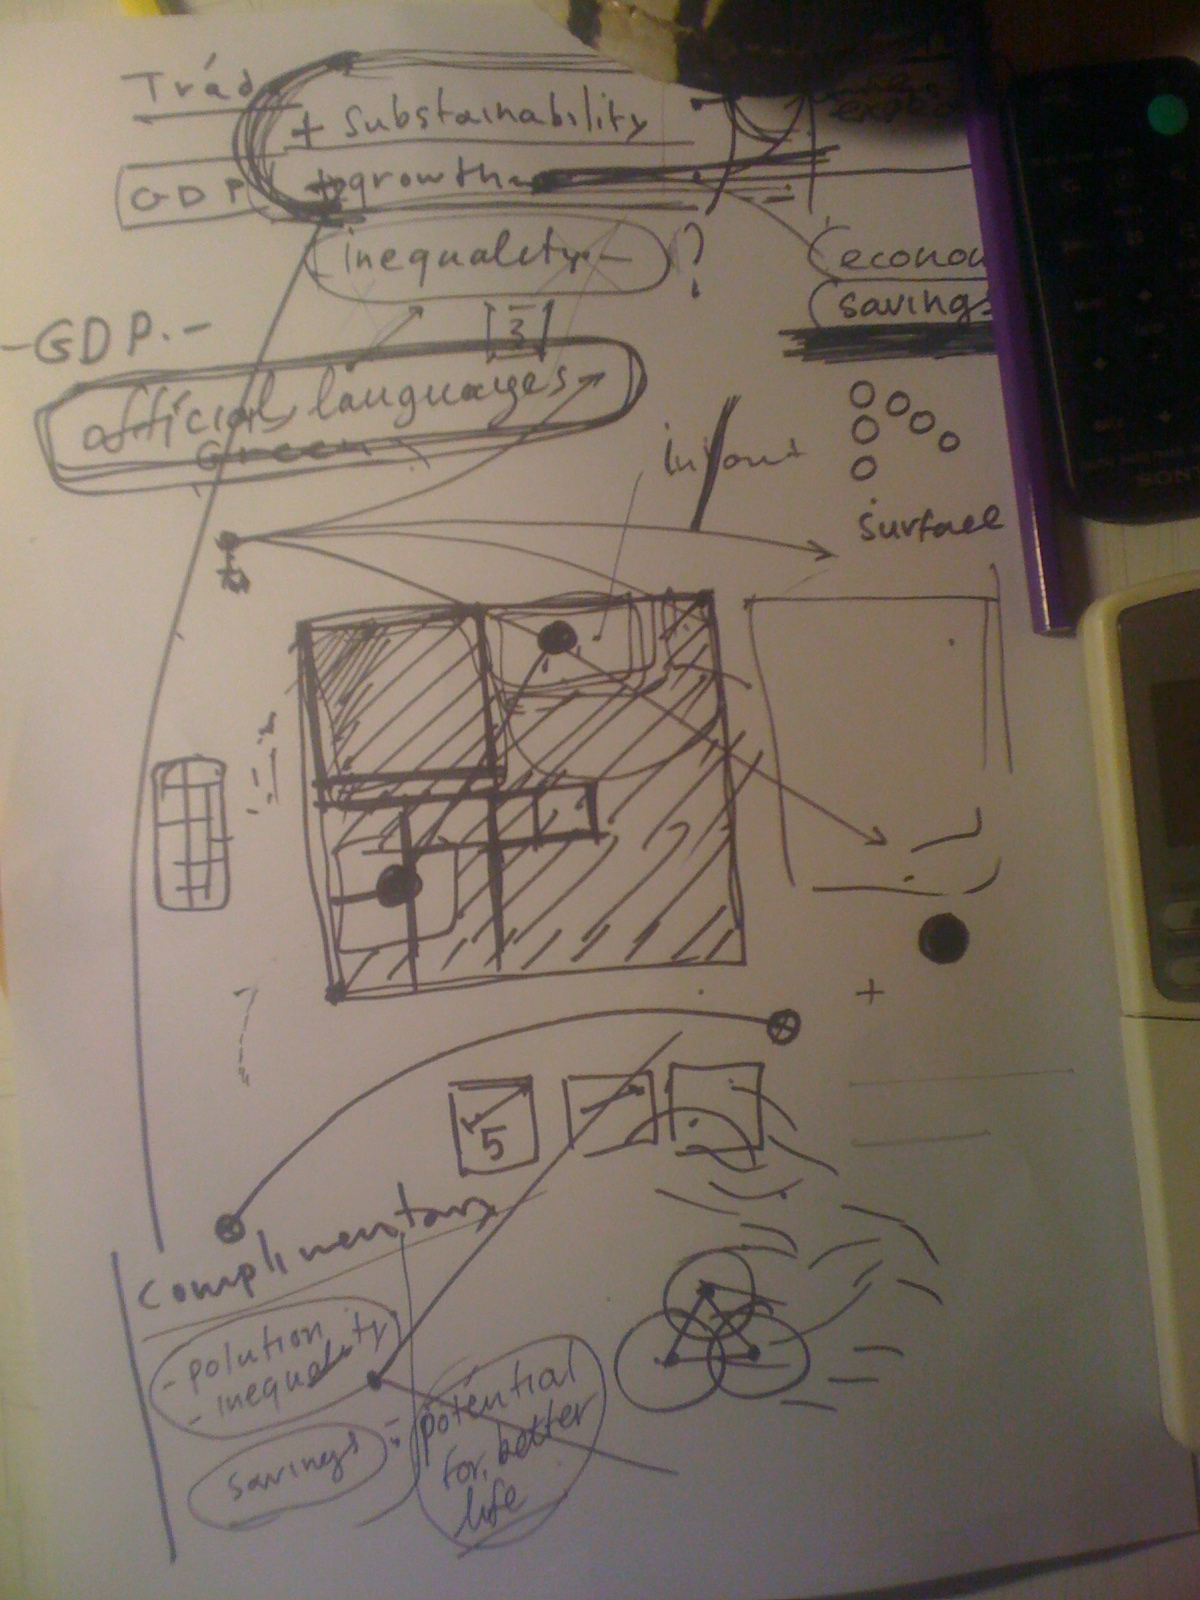 Trád
+ Substainability
GDP
+ growth
inequality -
?
econo
savings
- GDP. -
[3]
official languages
Green
in/out
surface
SONY
5
Complimentary
- polution
- inequality
savings
:
potential
for better
life